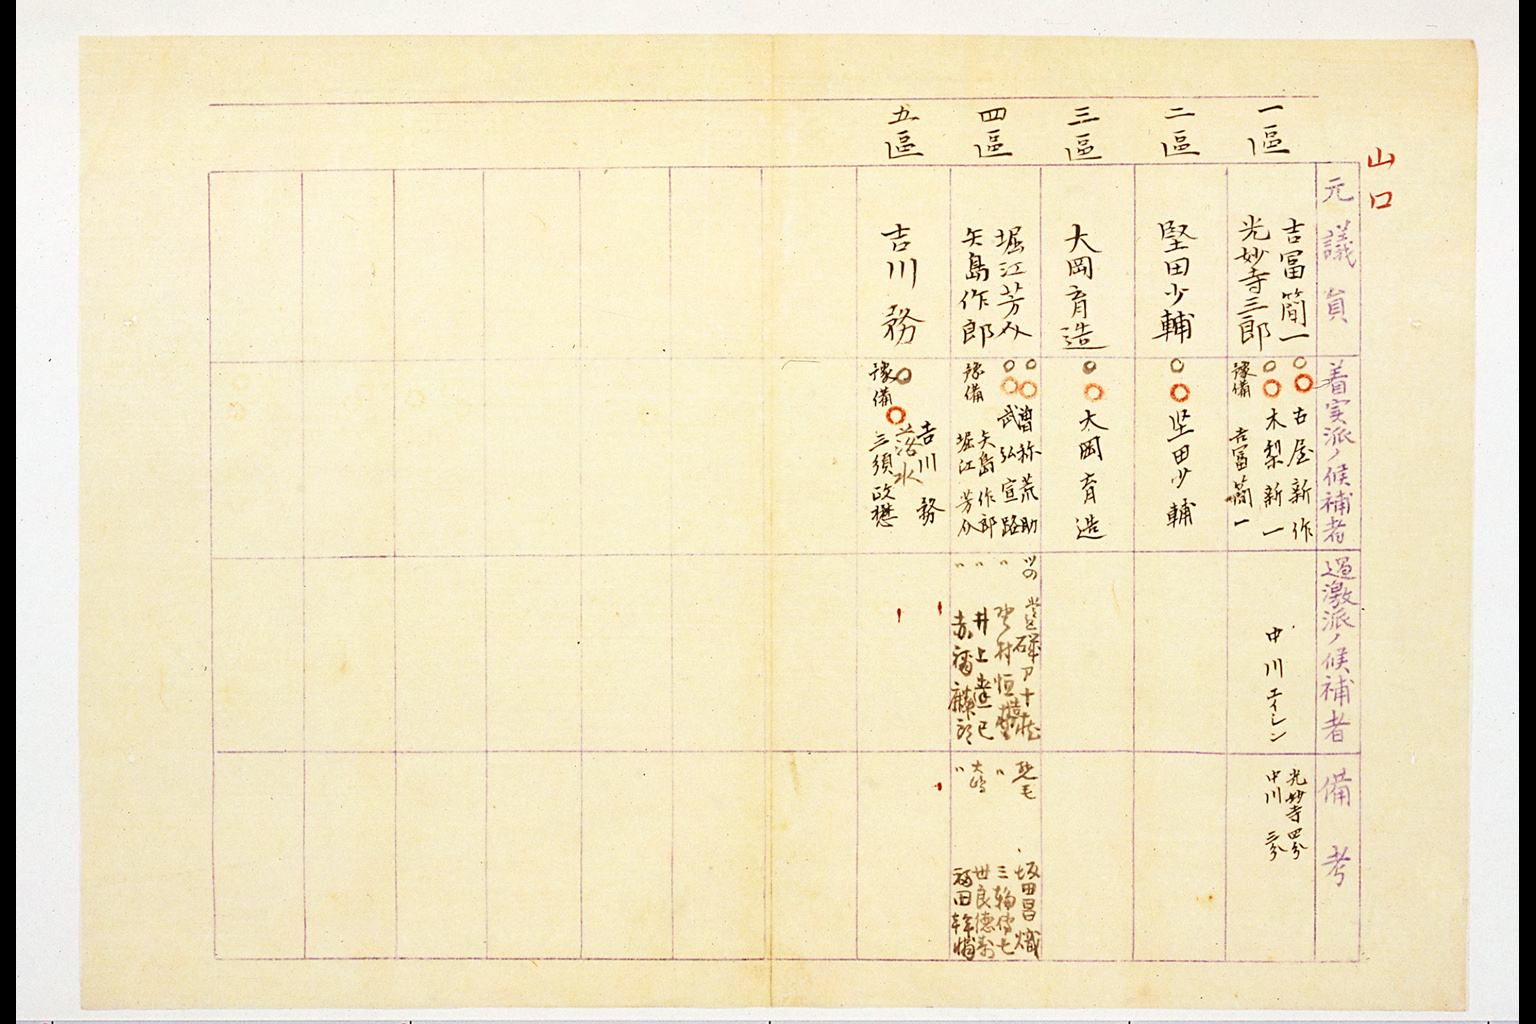 山口
元議員
着実派ノ候補者
過激派ノ候補者
備考
一區
吉冨簡一
光妙寺三郎
古屋新作
木梨新一
豫備
吉冨簡一
中川エイシン
光妙寺四分
中川三分
二區
堅田少輔
堅田少輔
三區
大岡育造
大岡育造
四區
堀江芳介
矢島作郎
曽祢荒助
武弘宣路
豫備
矢島作郎
堀江芳介
井上達已
坂田昌熾
三輪傳七
世良德寿
福田幹補
五區
吉川務
吉川務
落水
豫備
三須政懋